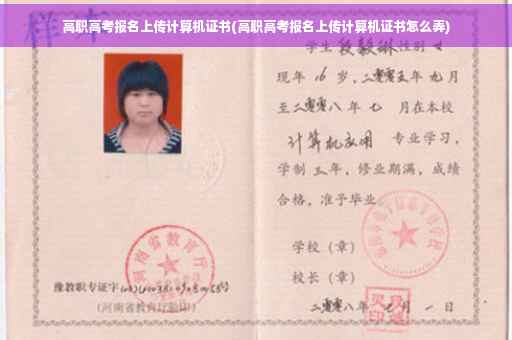 高职高考报名上传计算机证书(高职高考报名上传计算机证书怎么弄)
样本
学生段毅琳性别女
现年16岁，二零零五年九月
至二零零八年七月在本校
计算机应用 专业学习，
学制三年，修业期满，成绩
合格，准予毕业
学校（章）
校长（章）
二零零八年七月一日
河南省教育厅
豫教职专证字
(河南省教育厅验印)